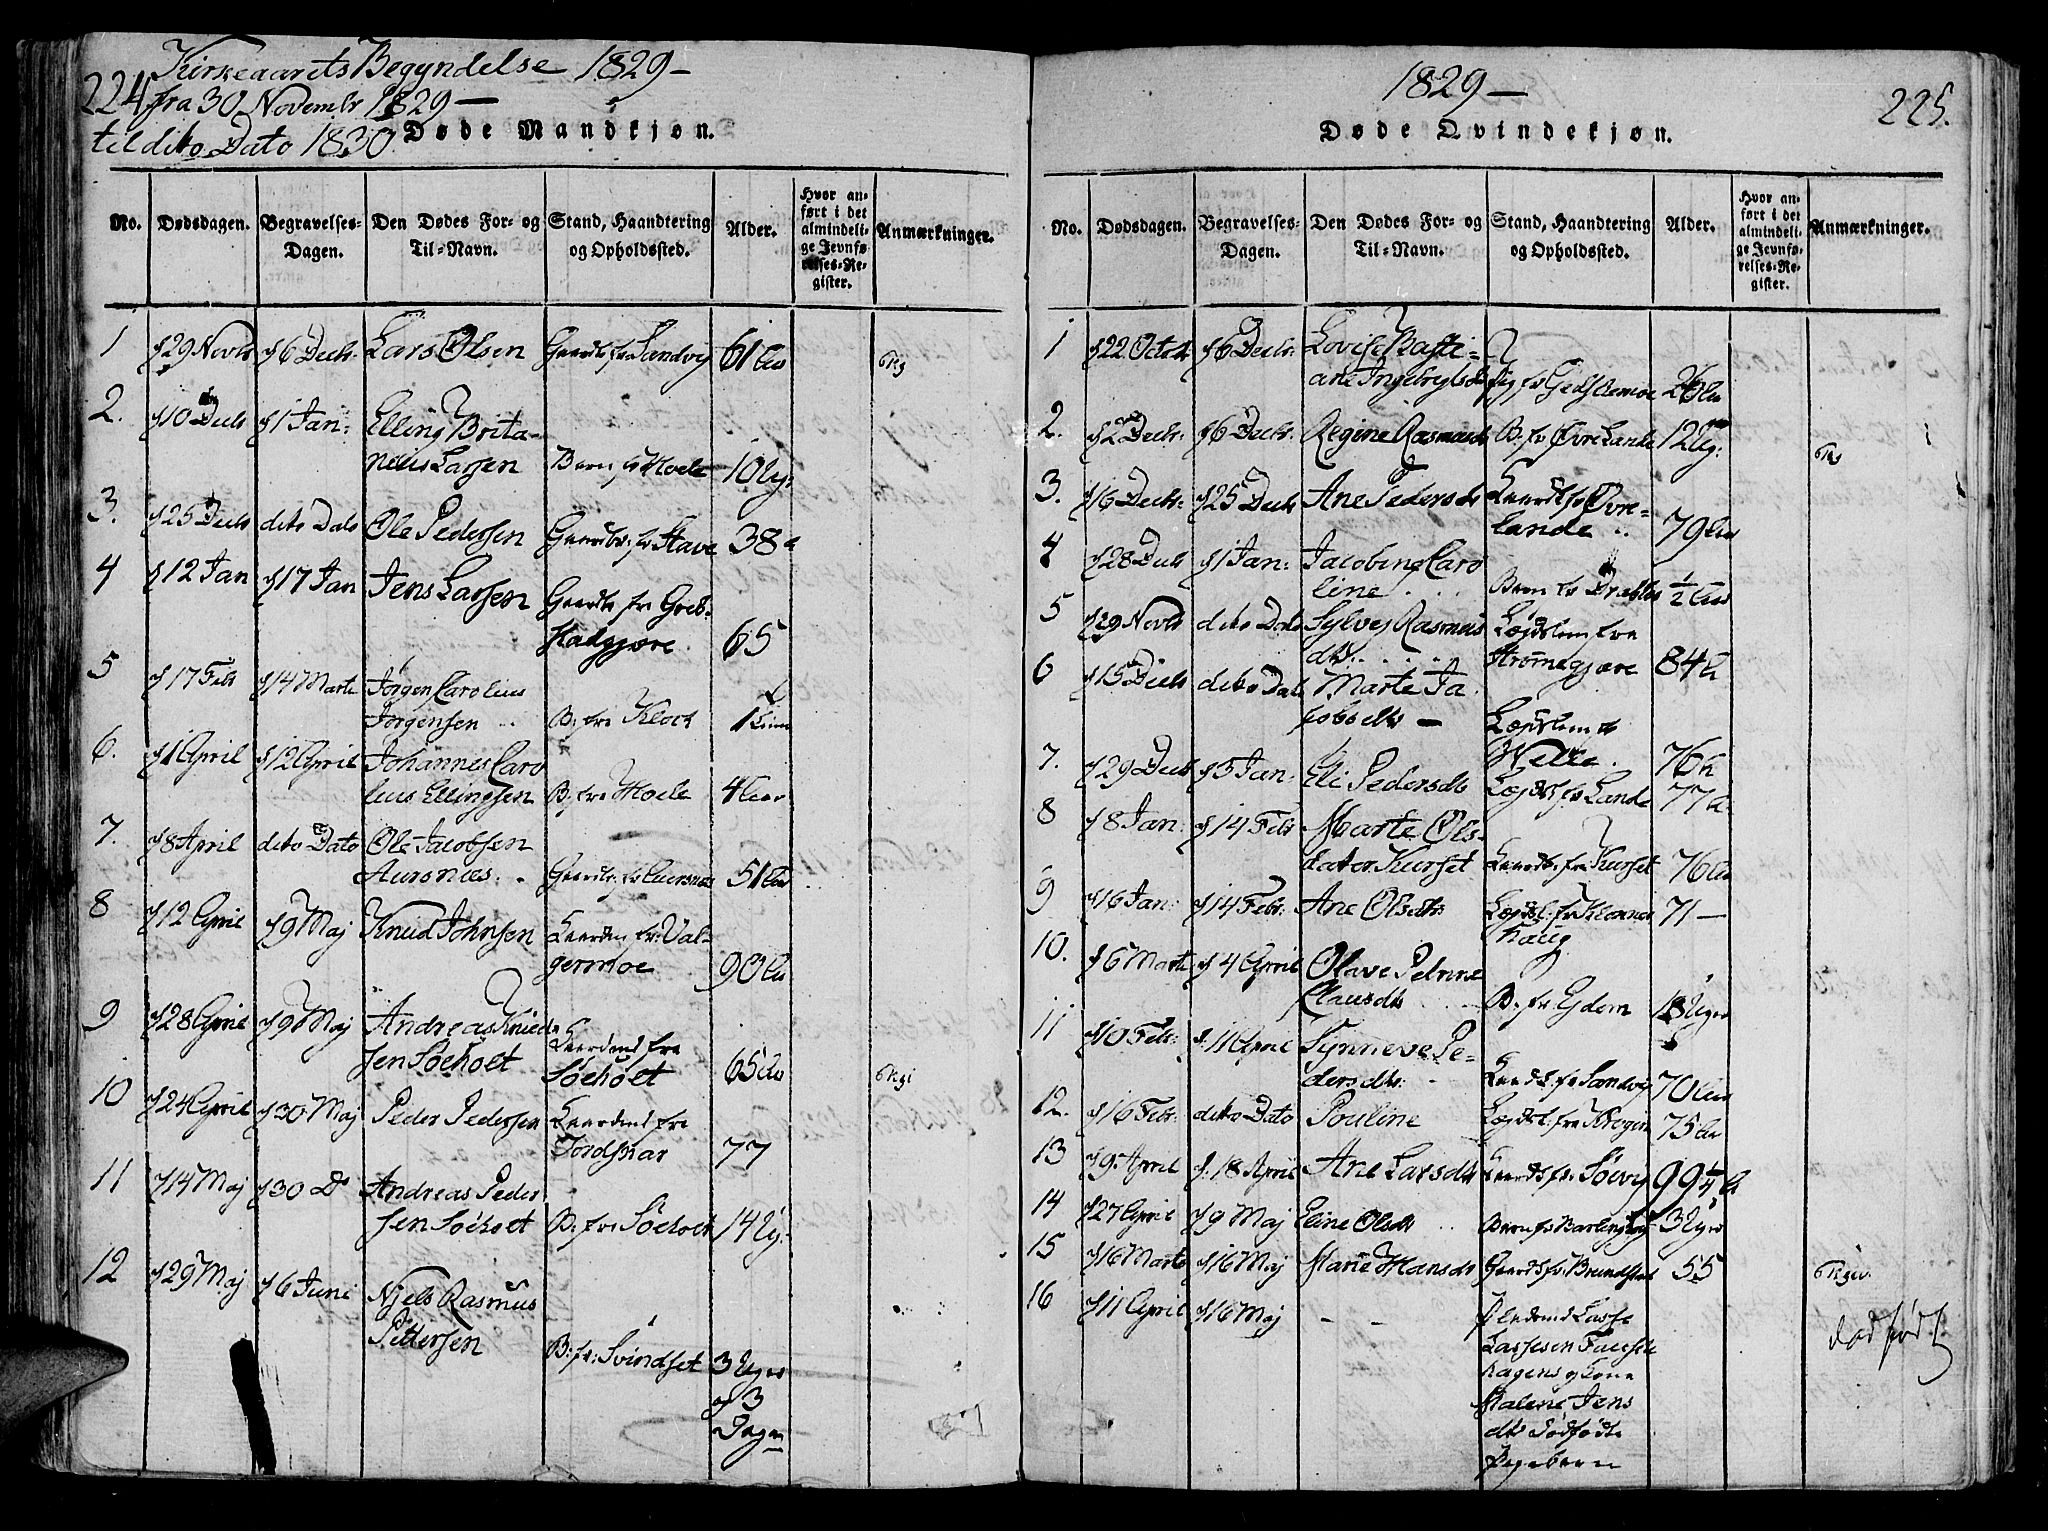 Kirkeaarets Begyndelse 1829 –
224 fra 30 Novembr 1829 –
til dito Dato 1830
Døde Mandkjøn.
No. Dødsdagen. Begravelses-Dagen. Den Dødes For- og Til-Navn. Stand, Haandtering og Opholdssted. Alder. Hvor anført i det almindelige Jevnførelses-Register. Anmærkninger.
1 d 29 Novbr d 6 Decbr Lars Olsen Gaardb fr Sandvig 61 Aar
2. d 10 Decb d 1 Jan: Elling Brita-
neus Larsen Barn fr Moele 10 Ug:
3. d 25 Decb dito Dato Ole Pedersen Gaardb: fr Stave 38
4 d 12 Jan d 17 Jan Jens Larsen Gaardb fr Greb-
stadgjære 65
5 d 17 Febr d 14 Marts Jørgen Carolius
Jørgensen B: fra Klock 1
6. d 1 April d 12 April Johannes Caro
lius Ellingsen B: fra Moele 4 Aar
7. d 8 April dito Dato Ole Jacobsen
Aursnæs Gaardb: fr Aursnæs 51 Aar
8 d 12 April d 9 Maj Knud Johnsen fr: Val-
germoe 90 Aar
9 d 28 April d 9 Maj Andreas Knud-
sen Søeholt fra
Søeholt 65 Aar
10 d 24 April d 30 Maj Peder Pedersen fra
77
11 d 14 Maj d 30 D Andreas Peder
sen Søeholt B: fr: Søeholt 14 Ug:
12 d 29 Maj d 6 Juni Niels Rasmus
Pettersen B: fr: Svindset 3 Uger
og 3
Dage
1829 –
225.
Døde Qvindekjøn.
No. Dødsdagen. Begravelses-Dagen. Den Dødes For- og Til-Navn. Stand, Haandtering og Opholdssted. Alder. Hvor anført i det almindelige Jevnførelses-Register. Anmærkninger.
1 d 22 Octob d 6 Decbr: Lovise Basti-
ane Ingebrigtsd fr 26 Aar
2. d 2 Decbr: d 6 Decbr: Regine Rasmusd B: fr Øvre Lande 12 Ug:
3. d 16 Decbr: d 25 Decb Ane Pedersdt fr Øvre-
lande 79 Aar
4 d 28 Decb d 1 Jan: Jacobine Caro
line Barn fr 1/2 Aar
5 d 29 Novbr dito Dato Sylvej Rasmus
dtr Lægdslem fra
Strømegjære 84
6 d 15 Decbr dito Dat Marte Ja
cobsdtr – Lægdslem fr
Welle 76
7. d 29 Decb d 5 Jan: Eli Pedersdt Lægdsl fr Lande 77
8 d 8 Jan: d 14 Febr Marte Ols-
dater Kurset fr Kurset 76 Aar
9 d 16 Jan: d 14 Febr: Ane Olsdtr Lægdsl: fr
haug 71 –
10. d 6 Marts d 4 April Olave Petrine
Clausdtr B: fr Ejdem 18 Uger
11 d 10 Febr: d. 11 April Synneve Pe-
dersdtr: fr Sandvig 70 Aar
12. d 16 Febr: dito Dato Pouline Lægdsl: fra 75 Aar
13 d 9 April d. 18 April Ane Larsdtr fr: Søevig 99 1/4
14 d 27 April d 9 Maj Eline Olsdt Barn fr 3 Uger
15 d 16 Marts d 16 Maj Marie Hansdt Gaardb fr: Brundstad 55
16 d 11 April d 16 Maj – –
Lasse
Lassesen
hagens og Kone
Malene Jens
dtr Dødfødte
Pigebarn
dødfødt